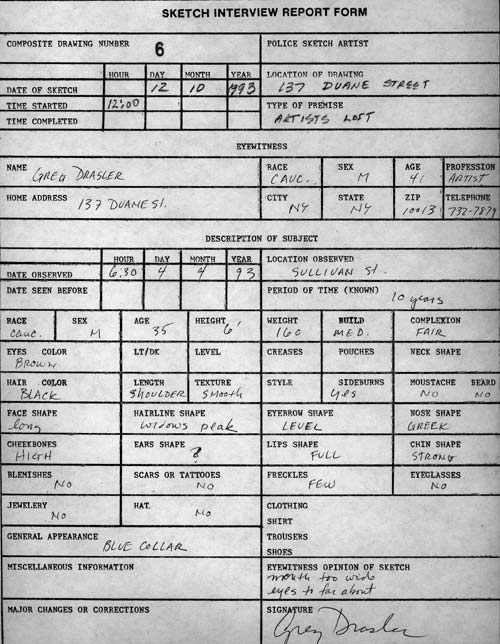 SKETCH INTERVIEW REPORT FORM
COMPOSITE DRAWING NUMBER 6 POLICE SKETCH ARTIST
HOUR DAY MONTH YEAR LOCATION OF DRAWING
DATE OF SKETCH 12 10 1993 137 DUANE STREET
TIME STARTED 12:00 TYPE OF PREMISE
TIME COMPLETED ARTISTS LOFT
EYEWITNESS
NAME GREG DRASLER RACE CAUC. SEX M AGE 41 PROFESSION ARTIST
HOME ADDRESS 137 DUANE St. CITY NY STATE NY ZIP 10013 TELEPHONE 732-7879
DESCRIPTION OF SUBJECT
HOUR DAY MONTH YEAR LOCATION OBSERVED
DATE OBSERVED 6:30 4 4 93 SULLIVAN St.
DATE SEEN BEFORE PERIOD OF TIME (KNOWN) 10 years
RACE SEX AGE HEIGHT WEIGHT BUILD COMPLEXION
cauc. M 35 6' 160 MED. FAIR
EYES COLOR LT/DK LEVEL CREASES POUCHES NECK SHAPE
BROWN
HAIR COLOR LENGTH TEXTURE STYLE SIDEBURNS MOUSTACHE BEARD
BLACK SHOULDER SMOOTH yes NO NO
FACE SHAPE HAIRLINE SHAPE EYEBROW SHAPE NOSE SHAPE
long widows peak LEVEL GREEK
CHEEKBONES EARS SHAPE LIPS SHAPE CHIN SHAPE
HIGH ? FULL STRONG
BLEMISHES SCARS OR TATTOOES FRECKLES EYEGLASSES
NO NO FEW NO
JEWELERY HAT. CLOTHING
NO NO SHIRT
GENERAL APPEARANCE TROUSERS
BLUE COLLAR SHOES
MISCELLANEOUS INFORMATION EYEWITNESS OPINION OF SKETCH
mouth too wide
eyes to far about
MAJOR CHANGES OR CORRECTIONS SIGNATURE
Greg Drasler